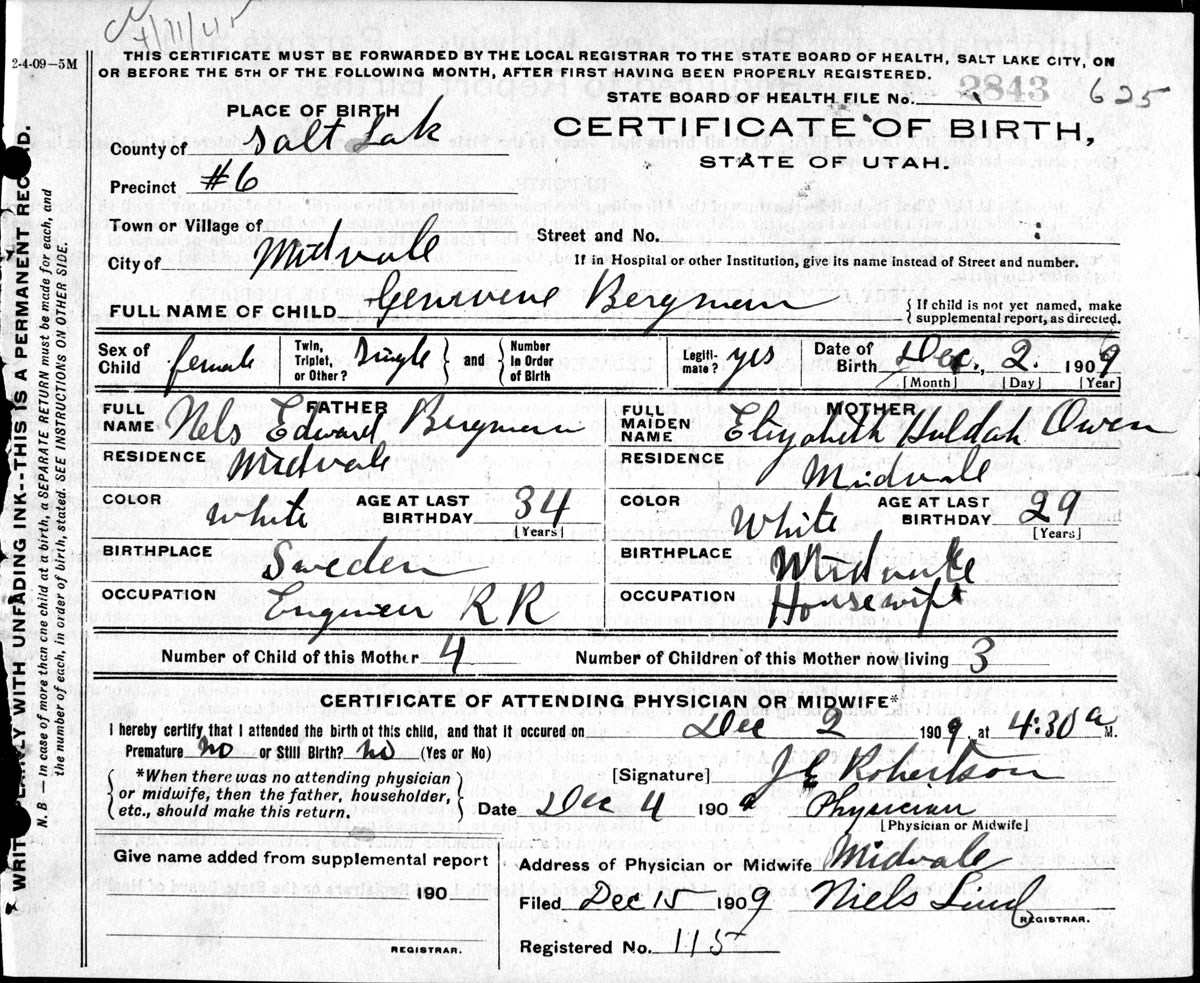 4/11/41
2-4-09—5M
THIS CERTIFICATE MUST BE FORWARDED BY THE LOCAL REGISTRAR TO THE STATE BOARD OF HEALTH, SALT LAKE CITY, ON
OR BEFORE THE 5TH OF THE FOLLOWING MONTH, AFTER FIRST HAVING BEEN PROPERLY REGISTERED.
STATE BOARD OF HEALTH FILE No. 2843 625
PLACE OF BIRTH
CERTIFICATE OF BIRTH,
STATE OF UTAH.
County of Salt Lak
Precinct #6
Town or Village of
City of Midvale
Street and No.
If in Hospital or other Institution, give its name instead of Street and number.
FULL NAME OF CHILD Genevieve Bergman
{If child is not yet named, make
supplemental report, as directed.
Sex of Child female
Twin, Triplet, or Other? Single } and { Number in Order of Birth
Legiti-mate? yes
Date of Birth Dec., 2. 1909
[Month] [Day] [Year]
FATHER
FULL NAME Nels Edward Bergman
RESIDENCE Midvale
COLOR White AGE AT LAST BIRTHDAY 34
[Years]
BIRTHPLACE Sweden
OCCUPATION Engineer R R
MOTHER
FULL MAIDEN NAME Elizabeth Huldah Owen
RESIDENCE Midvale
COLOR White AGE AT LAST BIRTHDAY 29
[Years]
BIRTHPLACE Midvale
OCCUPATION Housewife
Number of Child of this Mother 4 Number of Children of this Mother now living 3
CERTIFICATE OF ATTENDING PHYSICIAN OR MIDWIFE*
I hereby certify that I attended the birth of this child, and that it occured on Dec 2 1909, at 4:30 a M.
Premature no or Still Birth? no (Yes or No)
*When there was no attending physician
or midwife, then the father, householder,
etc., should make this return.
[Signature] J E Robertson
Date Dec 4 1909 Physician
[Physician or Midwife]
Give name added from supplemental report
190
REGISTRAR.
Address of Physician or Midwife Midvale
Filed Dec 15 1909 Niels Lind
REGISTRAR.
Registered No. 115
WRITE PLAINLY WITH UNFADING INK--THIS IS A PERMANENT RECORD.
N. B. — In case of more than one child at a birth, a SEPARATE RETURN must be made for each, and
the number of each, in order of birth, stated. SEE INSTRUCTIONS ON OTHER SIDE.